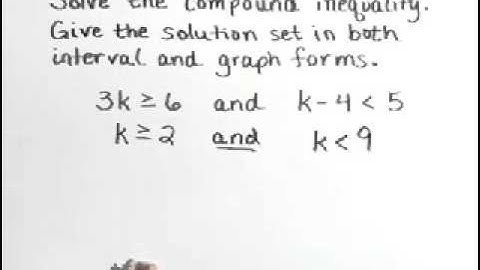 Solve the compound inequality.
Give the solution set in both
interval and graph forms.
3k ≥ 6 and k - 4 < 5
k ≥ 2 and k < 9